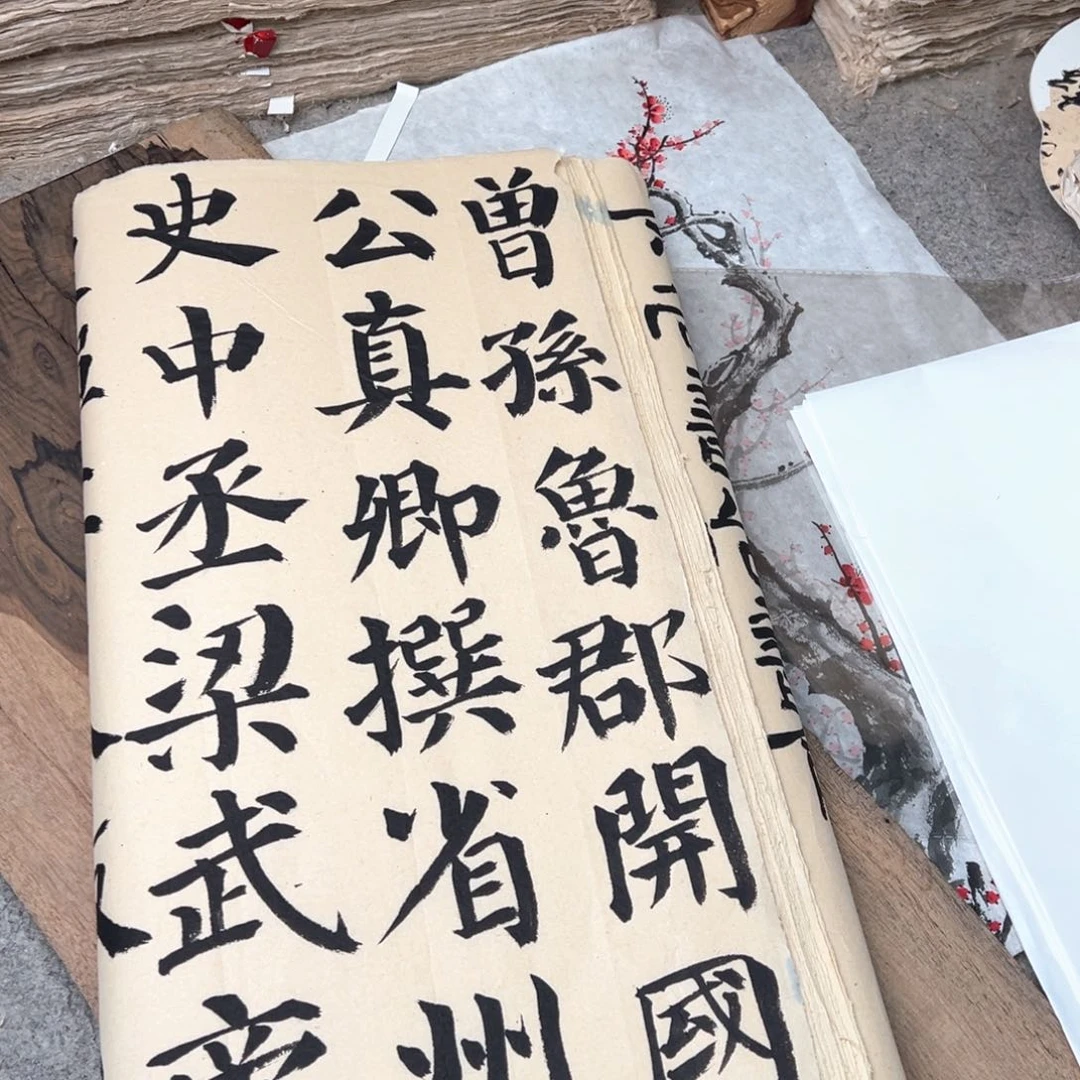 曾孫魯郡開國
公真卿撰省州
史中丞梁武帝